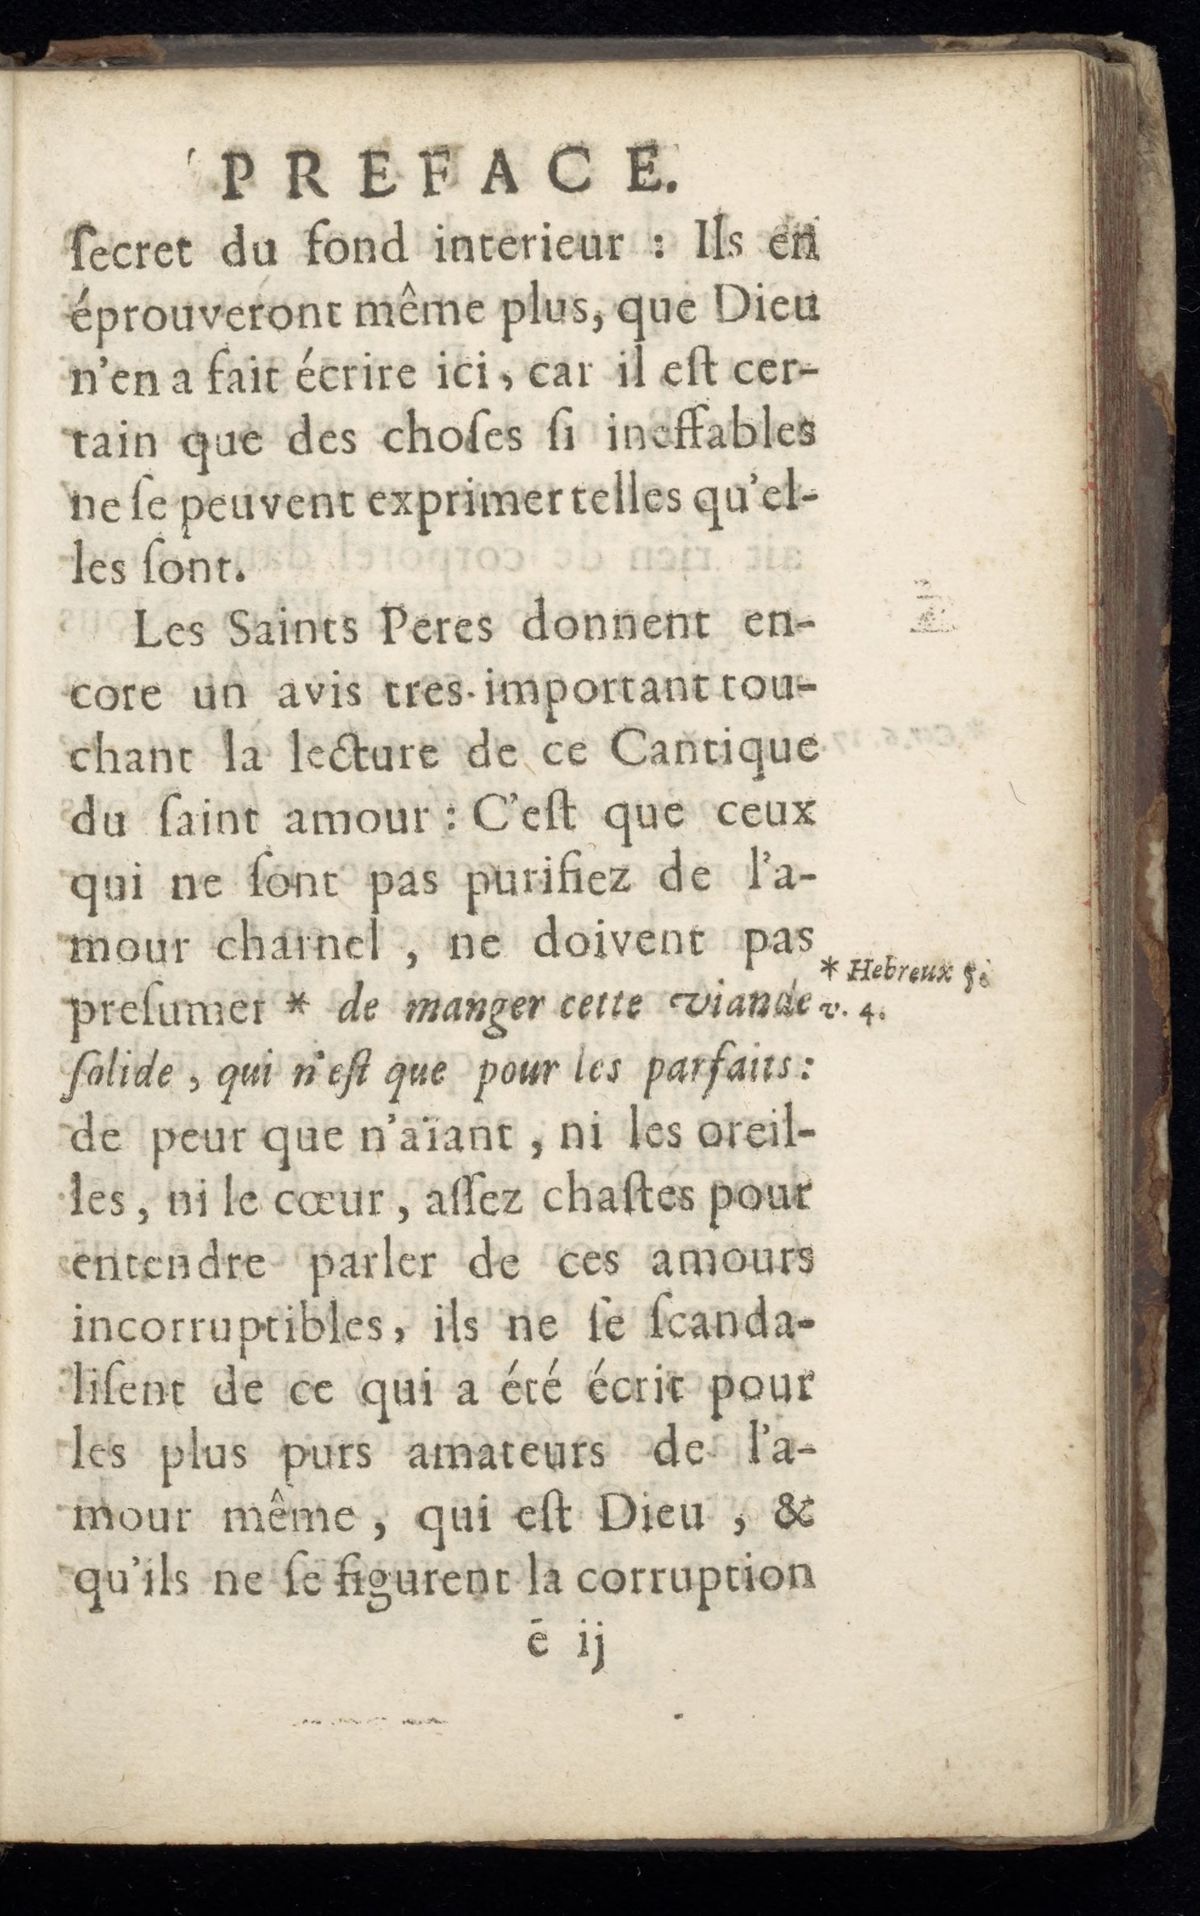 PREFACE.
ſecret du fond interieur : Ils en
éprouveront même plus, que Dieu
n'en a fait écrire ici, car il eſt cer-
tain que des choſes ſi ineffables
ne ſe peuvent exprimer telles qu'el-
les ſont.
Les Saints Peres donnent en-
core un avis tres-important tou-
chant la lecture de ce Cantique
du ſaint amour : C'eſt que ceux
qui ne ſont pas purifiez de l'a-
mour charnel, ne doivent pas
preſumer * de manger cette viande
ſolide, qui n'eſt que pour les parfaits:
* Hebreux 5.
v. 4.
de peur que n'aïant, ni les oreil-
les, ni le cœur, aſſez chaſtes pour
entendre parler de ces amours
incorruptibles, ils ne ſe ſcanda-
liſent de ce qui a été écrit pour
les plus purs amateurs de l'a-
mour même, qui eſt Dieu, &
qu'ils ne ſe figurent la corruption
ē ij